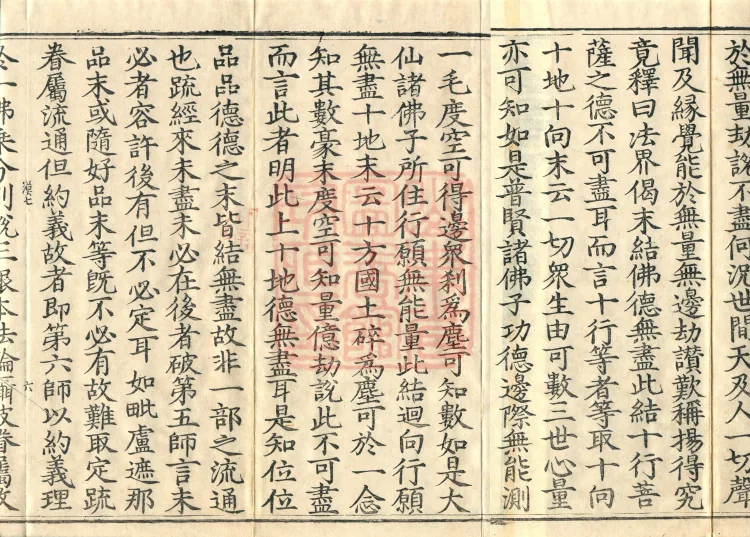 於無量劫說不盡何況世間天及人一切聲
聞及緣覺能於無量無邊劫讃歎稱揚得究
竟釋曰法界偈末結佛德無盡此結十行菩
薩之德不可盡耳而言十行等者等取十向
十地十向末云一切衆生由可數三世心量
亦可知如是普賢諸佛子功德邊際無能測
一毛度空可得邊衆刹爲塵可知數如是大
仙諸佛子所住行願無能量此結迴向行願
無盡十地末云十方國土碎爲塵可於一念
知其數豪末度空可知量億劫說此不可盡
而言此者明此上十地德無盡耳是知位位
品品德德之末皆結無盡故非一部之流通
也䟽經來未盡未必在後者破第五師言未
必者容許後有但不必定耳如毗盧遮那
品末或隨好品末等旣不必有故難取定䟽
眷屬流通但約義故者即第六師以約義理
於一佛乘分別說三根本法輪攝枝眷屬故
六